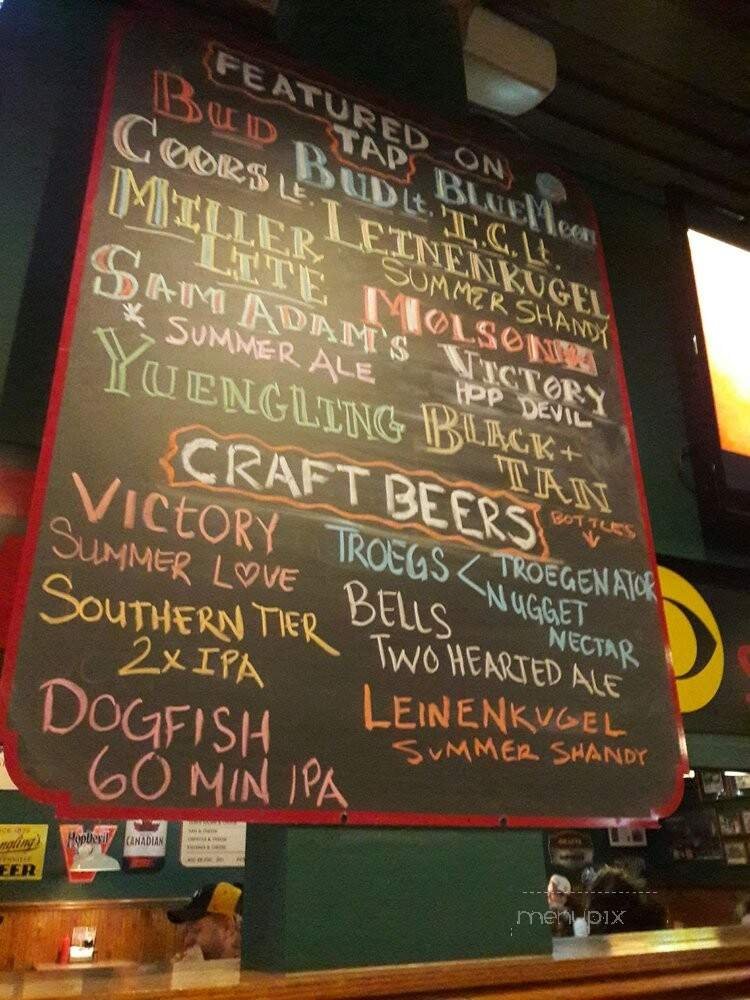 FEATURED ON
TAP
BUD
COORS Lt.
BUD Lt.
BLUE Moon
MILLER
LITE
I.C. Lt.
LEINENKUGEL
SUMMER SHANDY
SAM ADAM'S
* SUMMER ALE
MOLSON
YUENGLING
VICTORY
HOP DEVIL
BLACK +
TAN
CRAFT BEERS
BOTTLES
VICTORY
SUMMER L♡VE
TROEGS < TROEGENATOR
NUGGET
NECTAR
SOUTHERN TIER
2x IPA
BELLS
TWO HEARTED ALE
DOGFISH
60 MIN IPA
LEINENKUGEL
SUMMER SHANDY
HopDevil
CANADIAN
BEER
menupix